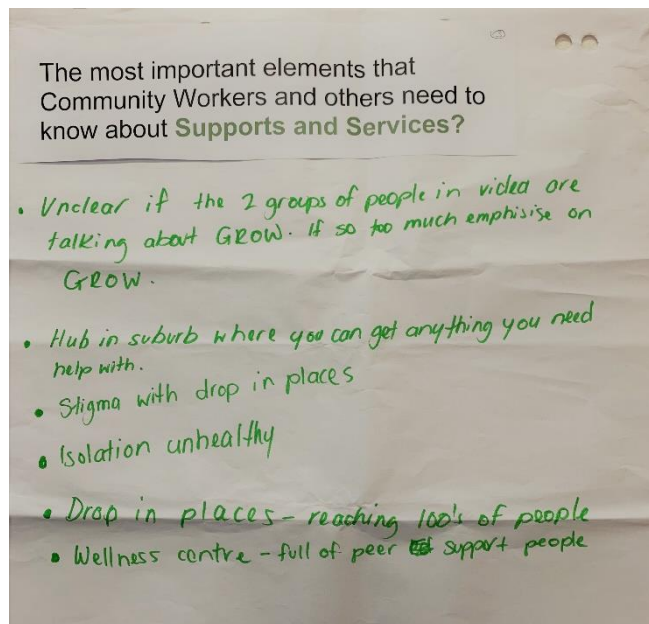 The most important elements that
Community Workers and others need to
know about Supports and Services?
• Unclear if the 2 groups of people in videa are
talking about GROW. If so too much emphisise on
GROW.
• Hub in suburb where you can get anything you need
help with.
• Stigma with drop in places
• Isolation unhealthy
• Drop in places - reaching 100's of people
• Wellness centre - full of peer support people